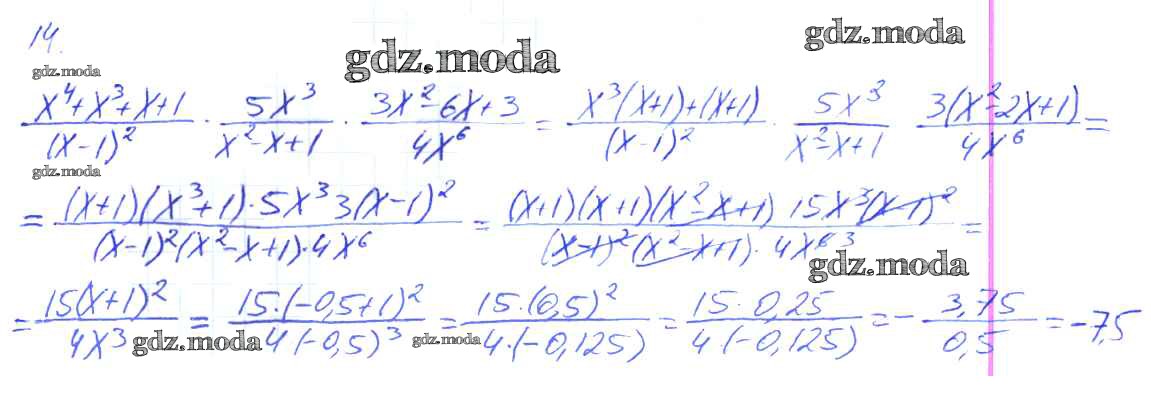 14.
gdz.moda
gdz.moda
gdz.moda
(x⁴+x³+x+1)/(x-1)² · 5x³/(x²-x+1) · (3x²-6x+3)/4x⁶ = (x³(x+1)+(x+1))/(x-1)² · 5x³/(x²-x+1) 3(x²-2x+1)/4x⁶ =
gdz.moda
= ((x+1)(x³+1)·5x³3(x-1)²)/((x-1)²(x²-x+1)·4x⁶) = ((x+1)(x+1)(x²-x+1) 15x³(x-1)²)/((x-1)²(x²-x+1)·4x⁶ ³) =
gdz.moda
= 15(x+1)²/4x³ = 15·(-0,5+1)²/4(-0,5)³ = 15·(0,5)²/4·(-0,125) = 15·0,25/4(-0,125) = -3,75/0,5 = -7,5
gdz.moda
gdz.moda